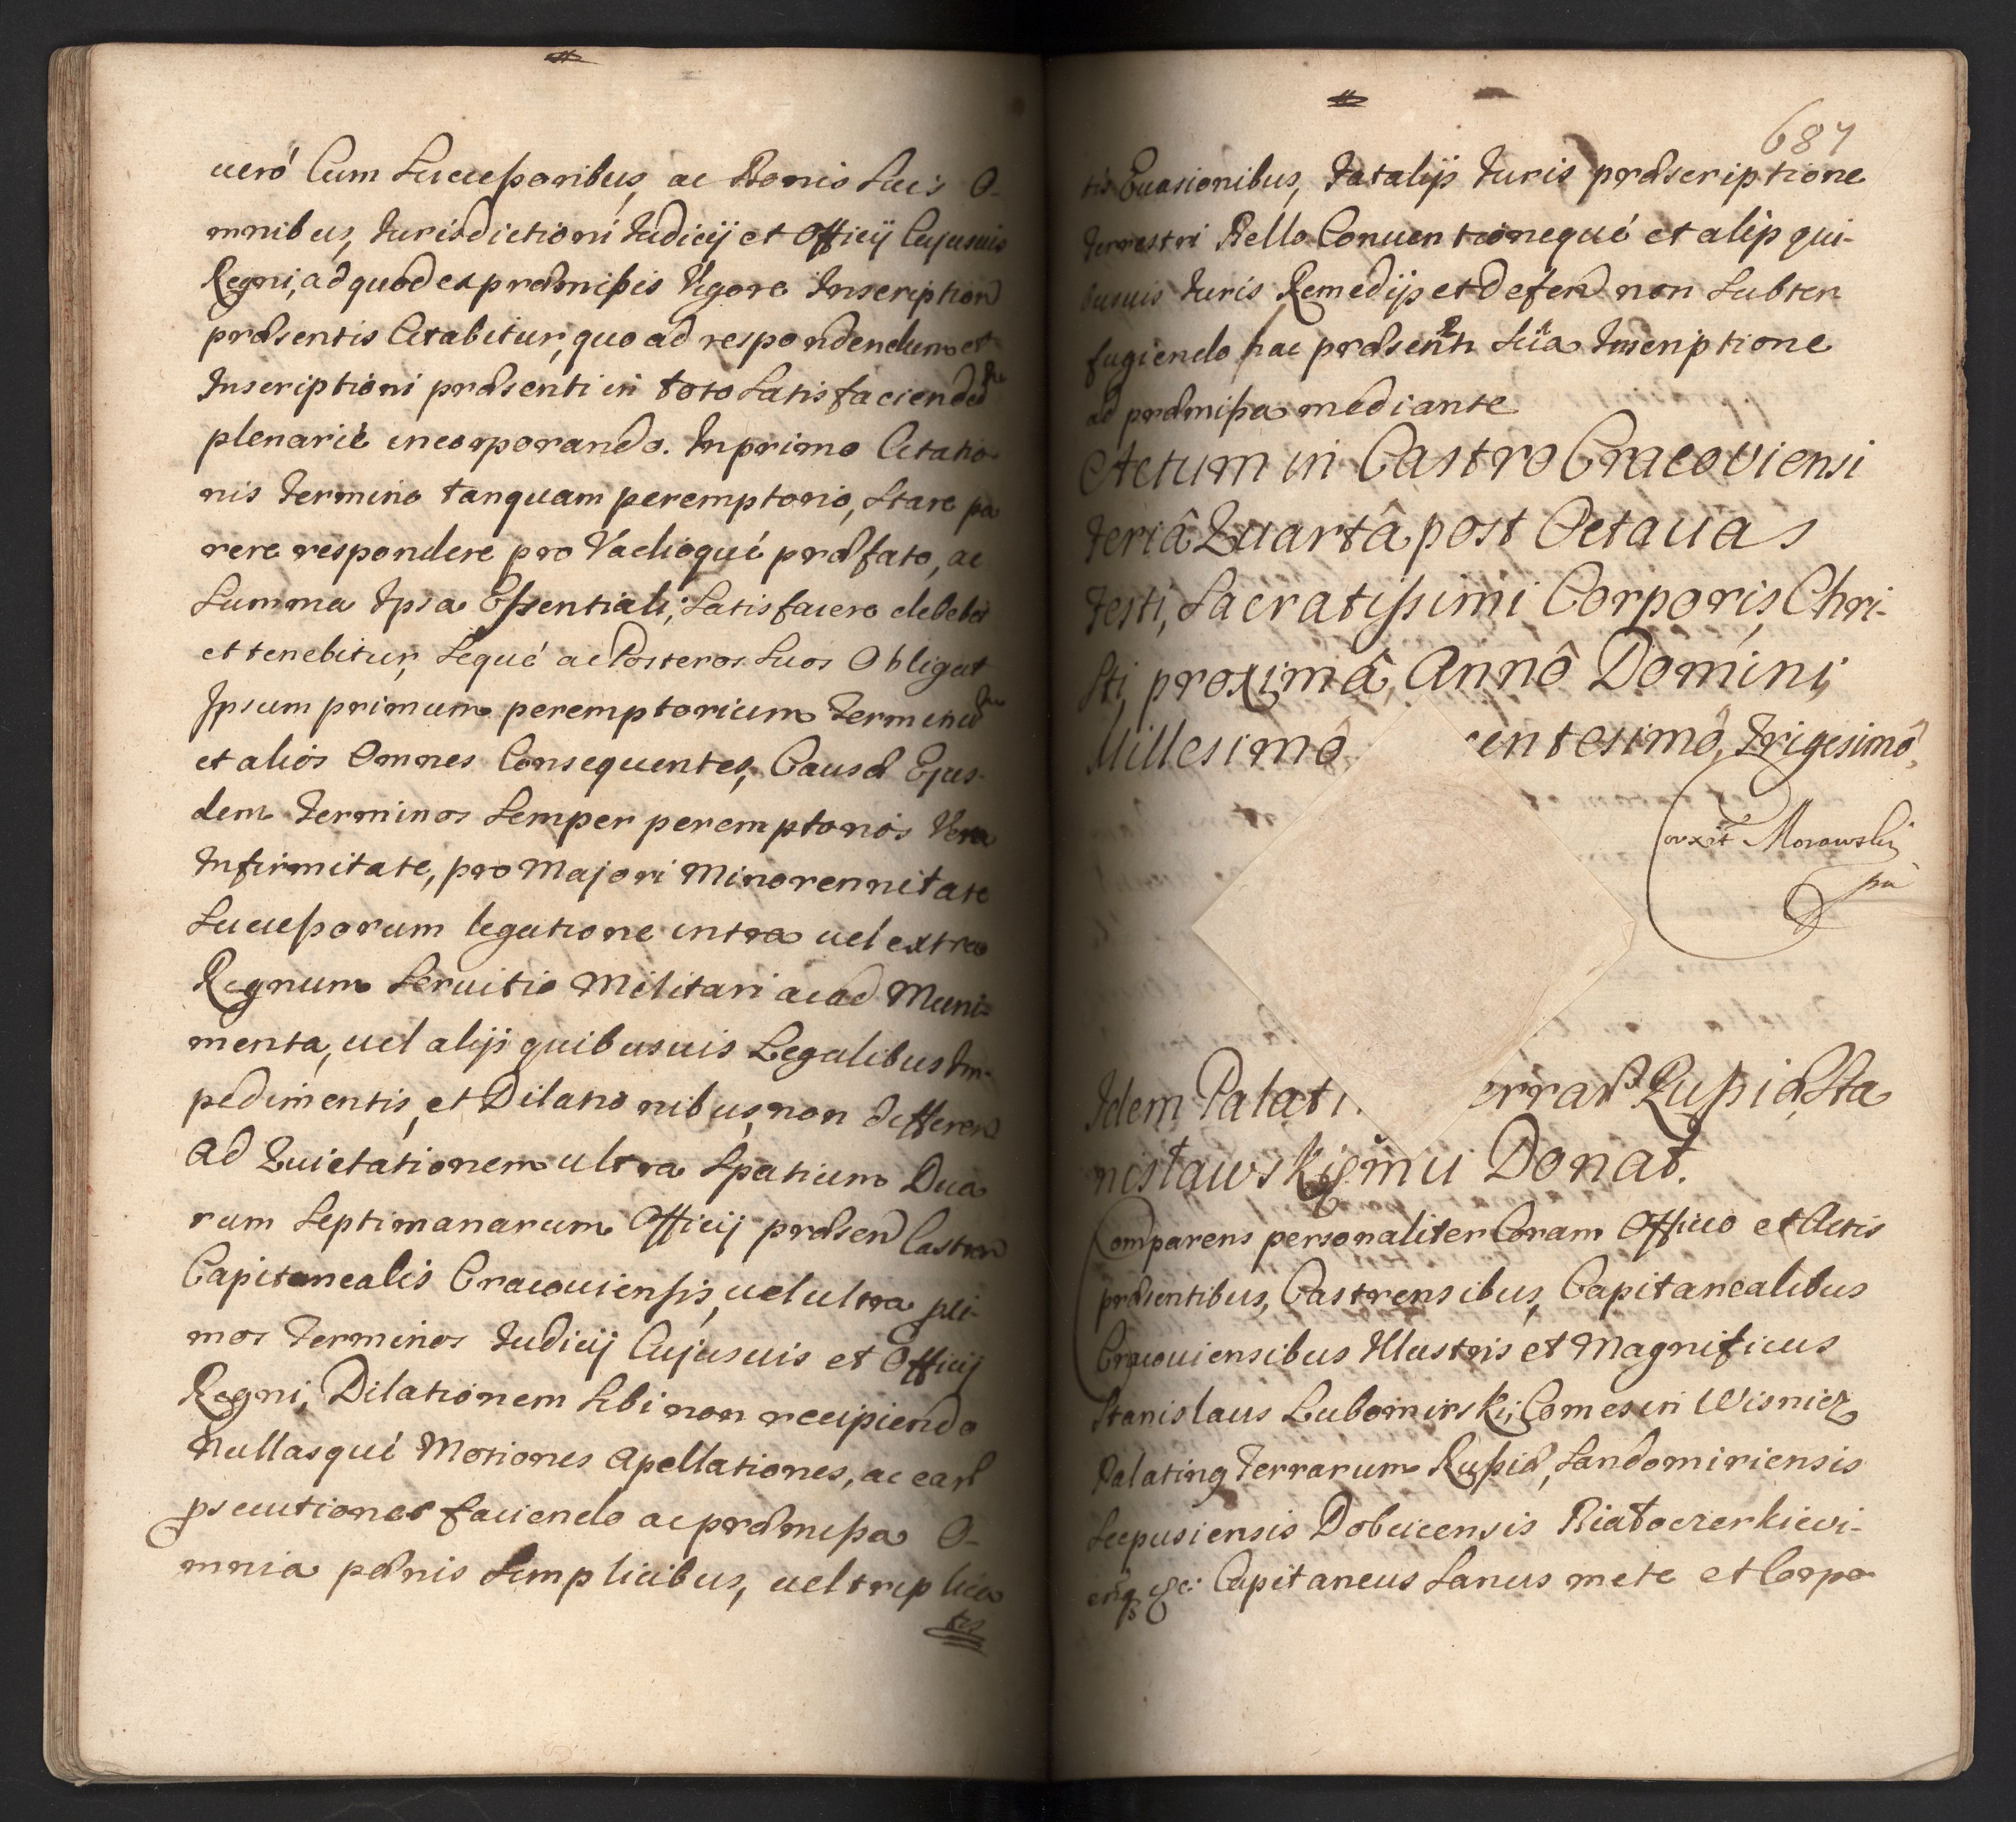 ueró Cum Successoribus, ac Bonis Suis O-
mnibus, Jurisdictioni Judicij et Officij Cujusuis
Regni, ad quod ex præmissis Vigore Inscription
præsentis Citabitur, quo ad respondendum et
Inscriptioni præsenti in toto Satisfaciend
plenarié incorporando. In primo Citatio
nis Termino tanquam peremptorio, Stare pa
rere respondere pro Vadioqué præfato, ac
Summa Ipsa Essentiali, Satisfacere debebit
et tenebitur, Sequé ac Posteros Suos Obligat
Ipsum primum peremptorium Terminu
et alios Omnes Consequentes, Causæ Ejus-
dem Terminos Semper peremptorios Vera
Infirmitate, pro Majori Minorennitate
Successorum legatione intra uel extra
Regnum Seruitio Militari ac ad Muni-
menta, uel alijs quibusuis Legalibus Im-
pedimentis, et Dilationibus, non differen
Ad Quietationem ultra Spatium Dua
rum Septimanarum Officij præsen Castren
Capitanealis Cracouiensis, uel ultra pri-
mos Terminos Judicij Cujusuis et Officij
Regni, Dilationem Sibi non recipiendo
Nullasqué Motiones Apellationes, ac ear
psecutiones faciendo ac præmissa O-
mnia pœnis Simplicibus, uel triplica
tis
687
tis Euasionibus, Fatalijs Juris præscriptione
Terrestri Bello Conuentionequé et alijs qui-
busuis Juris Remedijs et Defen non Subter
fugiendo hac præsenti Sua Inscriptione
ad præmissa mediante
Actum in Castro Cracoviensi
Feriâ Quartâ post Octauas
Festi, Sacratissimi Corporis, Chri-
sti, proximâ, Annô Domini,
Millesimô centesimô, Trigesimô,
Corxit Morawski
pm
Idem Palati errar Russiæ, Sta
nisławskiemu Donat.
Comparens personaliter Coram Officio et Actis
præsentibus, Castrensibus, Capitanealibus
Cracouiensibus Illustris et Magnificus
Stanislaus Lubomirski, Comes in Wisnicz
Palatinq Terrarum Russiæ, Sandomiriensis
Scepusiensis Dobcicensis Białocerkievi-
ensq &c: Capitaneus Sanus mete et Corpo